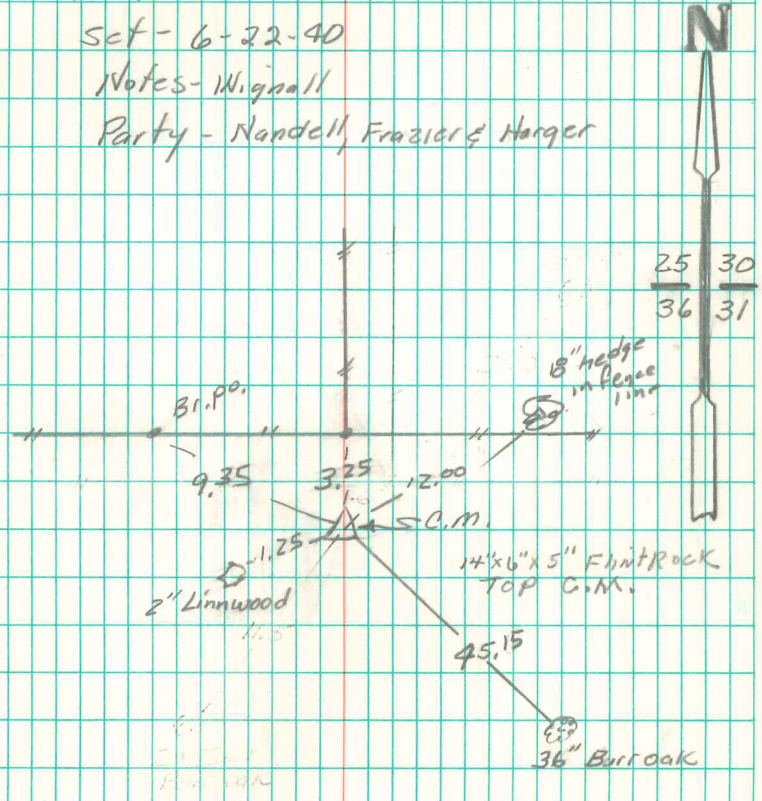 Set - 6-22-40
Notes - Wignall
Party - Nandell, Frazier & Harger
N
25 30
36 31
18" hedge
in fence
line
Br. Po.
9.35
3.25
12.00
C.M.
1.25
14"x6"x5" Flint Rock
TOP C.M.
2" Linnwood
45.15
36" Burr oak